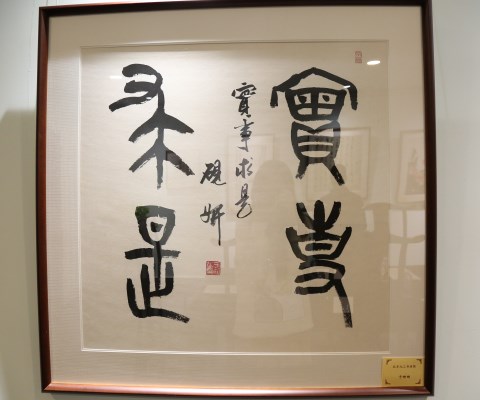 實事
求是
實事求是
硯妍